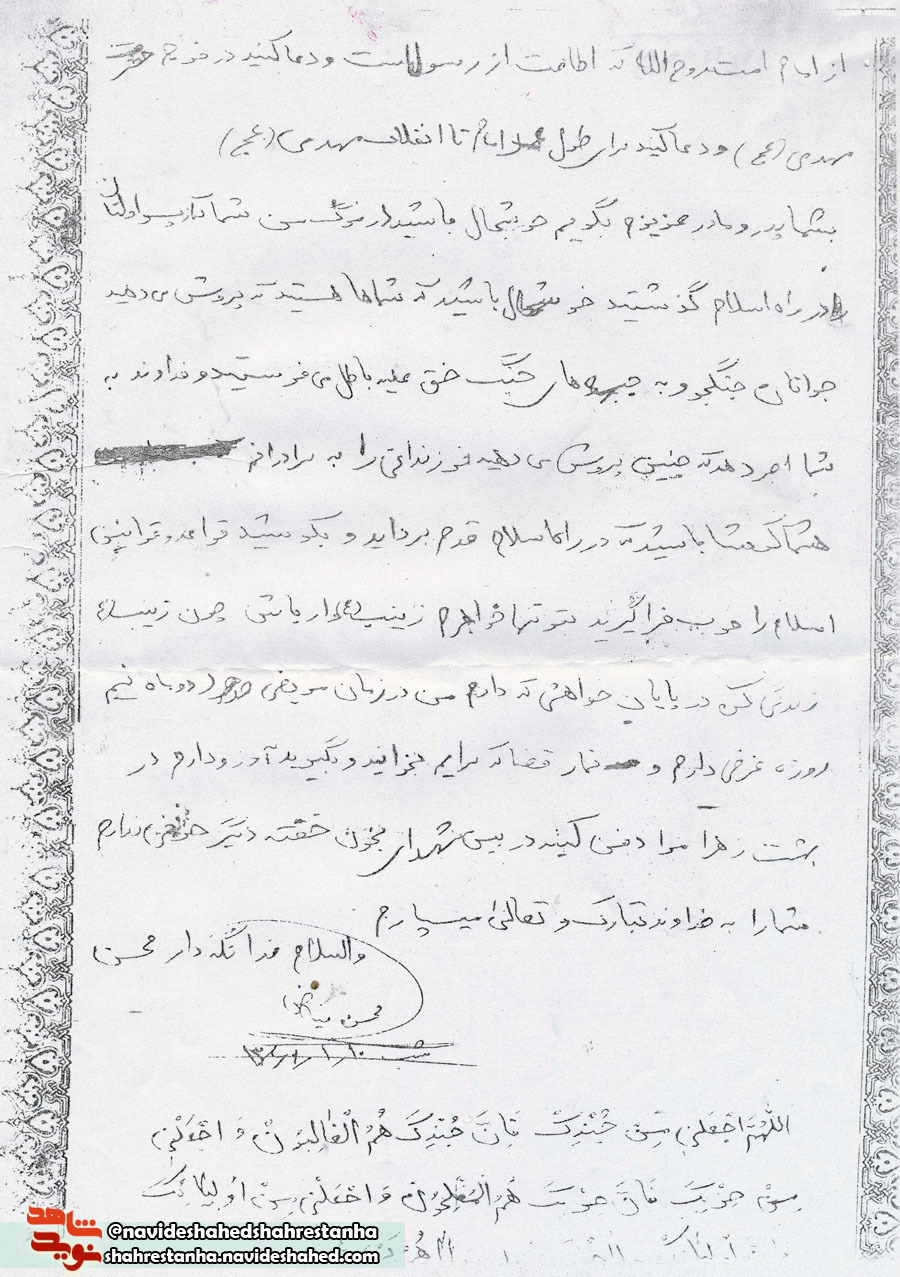 از امام امت روح الله که اطاعت از رسول است و دعا کنید در فرج حضرت
مهدی (عج) و دعا کنید برای طول عمر امام تا انقلاب مهدی (عج)
بشما پدر و مادر عزیزم بگویم خوشحال باشید از مرگ من شما که از پسر اولتان
در راه اسلام گذشتید خوشحال باشید که شماها هستید که پرورش می دهید
جوانان جنگجو و به جبهه های جنگ حق علیه باطل می فرستید و خداوند به
شما اجر دهد که چنین پرورش می دهید فرزندانی را به برادرانم
باشید که در راه اسلام قدم بردارید و بکوشید قواعد و قوانین
اسلام را خوب فرا گیرید تو تنها خواهرم زینب وار باش چون زینب
زندگی کن در پایان خواهش که دارم من در زمان مریضی دو ماه نیم
روزه قرض دارم و نماز قضا که برایم بخوانید و بگیرید آرزو دارم در
بهشت زهرا مرا دفن کنید در بین شهدای بخون خفته دیگر عرضی ندارم
شما را به خداوند تبارک و تعالی میسپارم
والسلام خدا نگهدار محسن
محسن
شب
اللهم اجعلنی من جندک فان جندک هم الغالبون و اجعلنی
من حزبک فان حزبک هم المفلحون و اجعلنی من اولیائک
شاهد
نوید
©navideshahedshahrestanha
shahrestanha.navideshahed.com